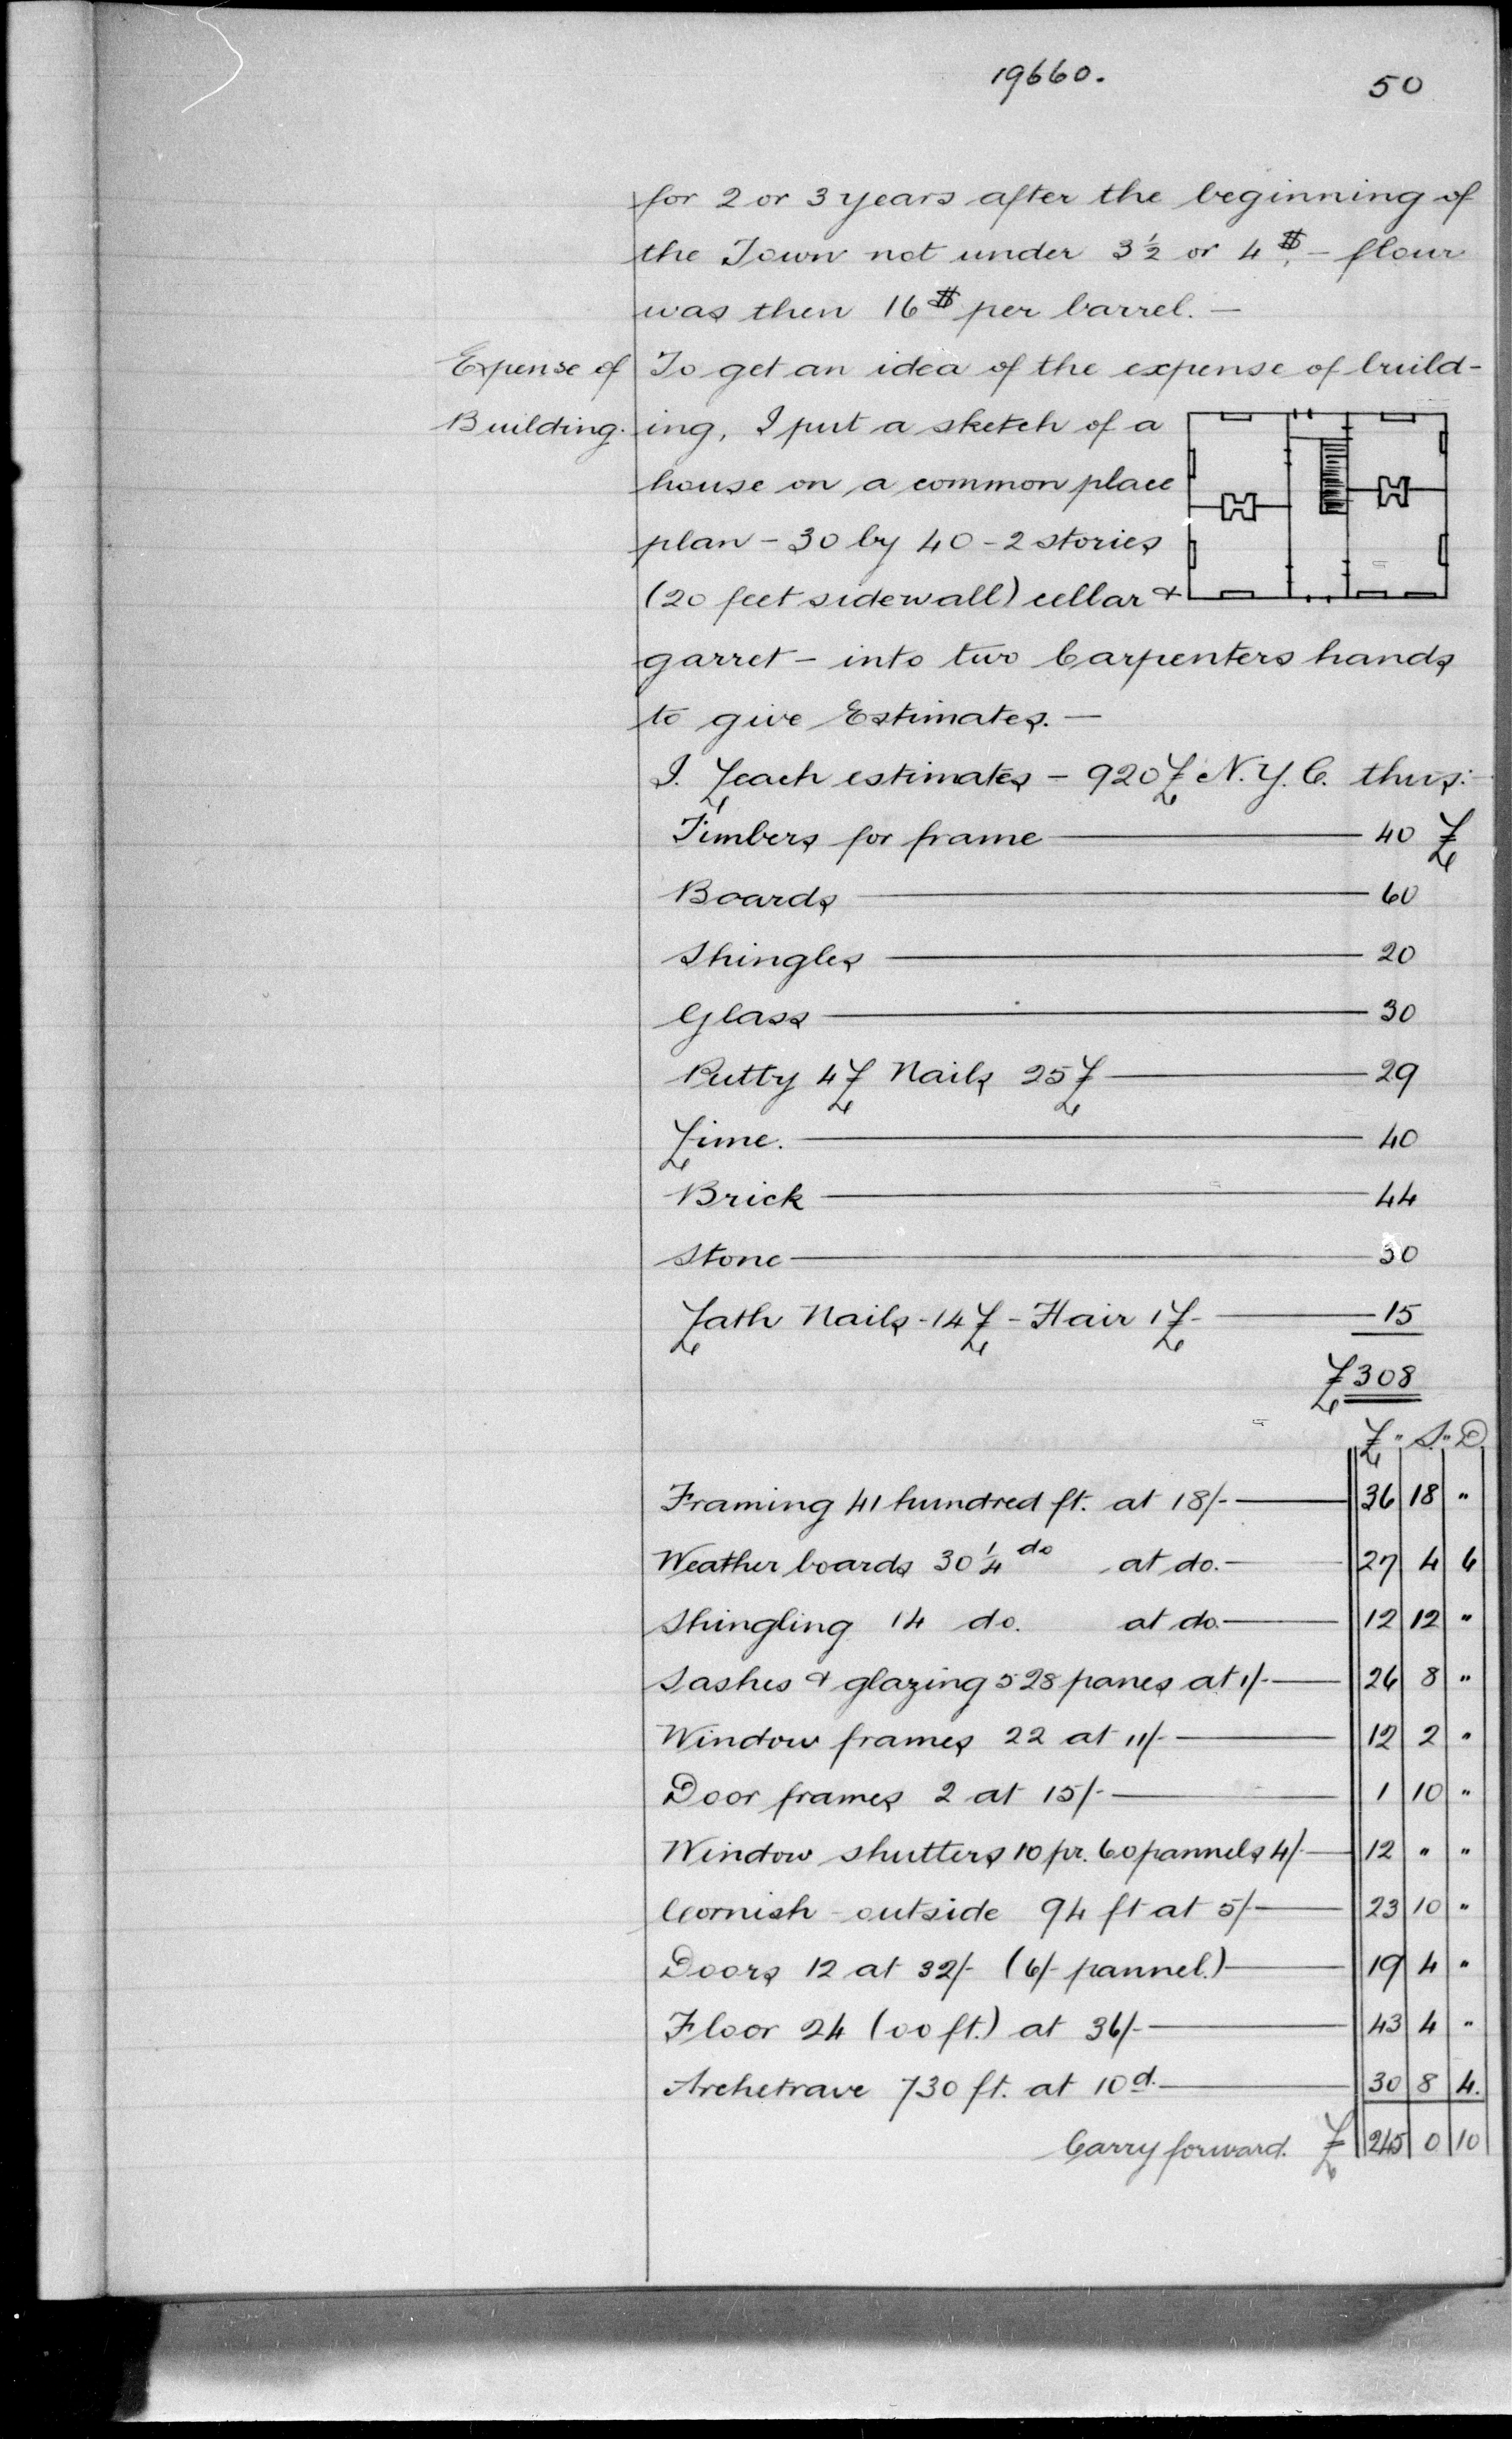 19660.
50
for 2 or 3 years after the beginning of
the Town not under 3½ or 4 $ - flour
was then 16 $ per barrel. -
Expense of Building.
To get an idea of the expense of build-
ing, I put a sketch of a
house on a common place
plan - 30 by 40 - 2 stories
(20 feet sidewall) cellar &
garret - into two Carpenters hands
to give Estimates. -
I. Leach estimates - 920 £ N.Y.C. thus:-
Timbers for frame — 40 £
Boards — 60
Shingles — 20
Glass — 30
Putty 4£ Nails 25£ — 29
Lime. — 40
Brick — 44
Stone — 30
Lath Nails - 14£ - Hair 1£ - — 15
£308
£ " S. " D.
Framing 41 hundred ft. at 18/- — 36 18 "
Weather boards 30¼ do at do. — 27 4 6
Shingling 14 do. at do. — 12 12 "
Sashes & glazing 528 panes at 1/- — 26 8 "
Window frames 22 at 11/- — 12 2 "
Door frames 2 at 15/- — 1 10 "
Window shutters 10 pr. 60 pannels 4/- — 12 " "
Cornish - outside 94 ft at 5/- — 23 10 "
Doors 12 at 32/- (6/- pannel.) — 19 4 "
Floor 24 (00 ft.) at 36/- — 43 4 "
Archetrave 730 ft. at 10d. — 30 8 4.
Carry forward. £ 245 0 10